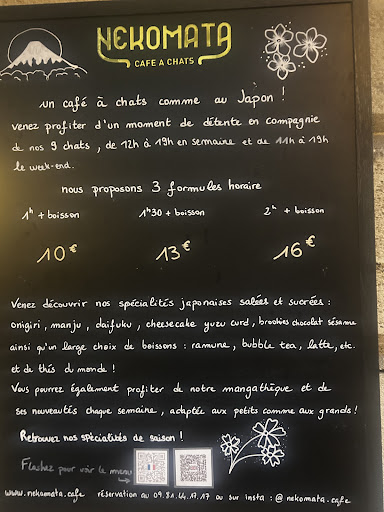 NEKOMATA
CAFE A CHATS
un café à chats comme au Japon !
venez profiter d'un moment de détente en compagnie
de nos 9 chats, de 12h à 19h en semaine et de 11h à 19h
le week-end.
nous proposons 3 formules horaire
1h + boisson 1h30 + boisson 2h + boisson
10€ 13€ 16€
Venez découvrir nos spécialités japonaises salées et sucrées :
onigiri, manju, daifuku, cheesecake yuzu curd, brookies chocolat sésame
ainsi qu'un large choix de boissons : ramune, bubble tea, latte, etc.
et de thés du monde !
Vous pourrez également profiter de notre mangathèque et de
ses nouveautés chaque semaine, adaptée aux petits comme aux grands !
Retrouvez nos spécialités de saison !
Flashez pour voir le menu
www.nekomata.cafe réservation au 09.81.44.17.17 ou sur insta : @nekomata.cafe